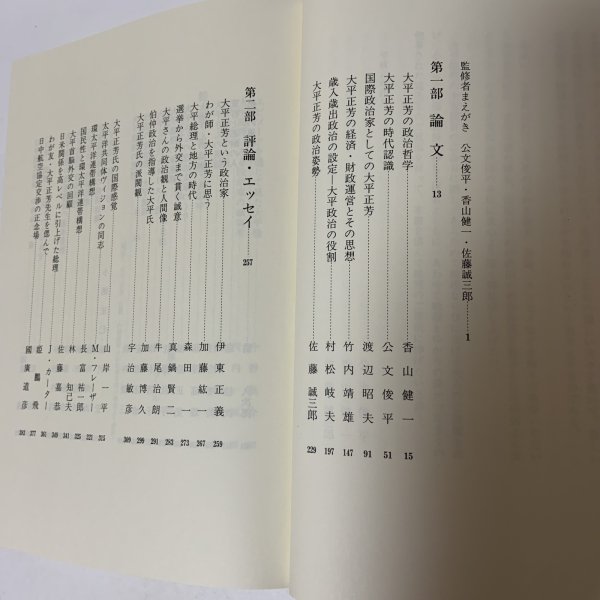 監修者まえがき　公文俊平・香山健一・佐藤誠三郎………1
第一部　論　文………13
大平正芳の政治哲学………香山健一　15
大平正芳の時代認識………公文俊平　51
国際政治家としての大平正芳………渡辺昭夫　91
大平正芳の経済・財政運営とその思想………竹内靖雄　147
歳入歳出政治の設定―大平政治の役割………村松岐夫　197
大平正芳の政治姿勢………佐藤誠三郎　229
第二部　評論・エッセイ　257
大平正芳という政治家………伊東正義　259
わが師・大平正芳に思う………加藤紘一　267
大平総理と地方の時代………森田　一　273
選挙から外交まで貫く誠意………真鍋賢二　283
大平さんの政治観と人間像………牛尾治朗　291
伯仲政治を指導した大平氏………加藤博久　299
大平正芳氏の派閥観………宇治敏彦　309
大平正芳氏の国際感覚………山岸一平　315
太平洋共同体ヴィジョンの同志………M・フレーザー　321
環太平洋連帯構想………長富祐一郎　325
国民性と環太平洋連帯構想………林　知己夫
大平首脳外交の回顧………佐藤嘉恭
日米関係を高レベルに引上げた総理………J・カーター
わが友・大平正芳先生を偲んで………姫　鵬飛　377
日中航空協定交渉の正念場………國廣道彦